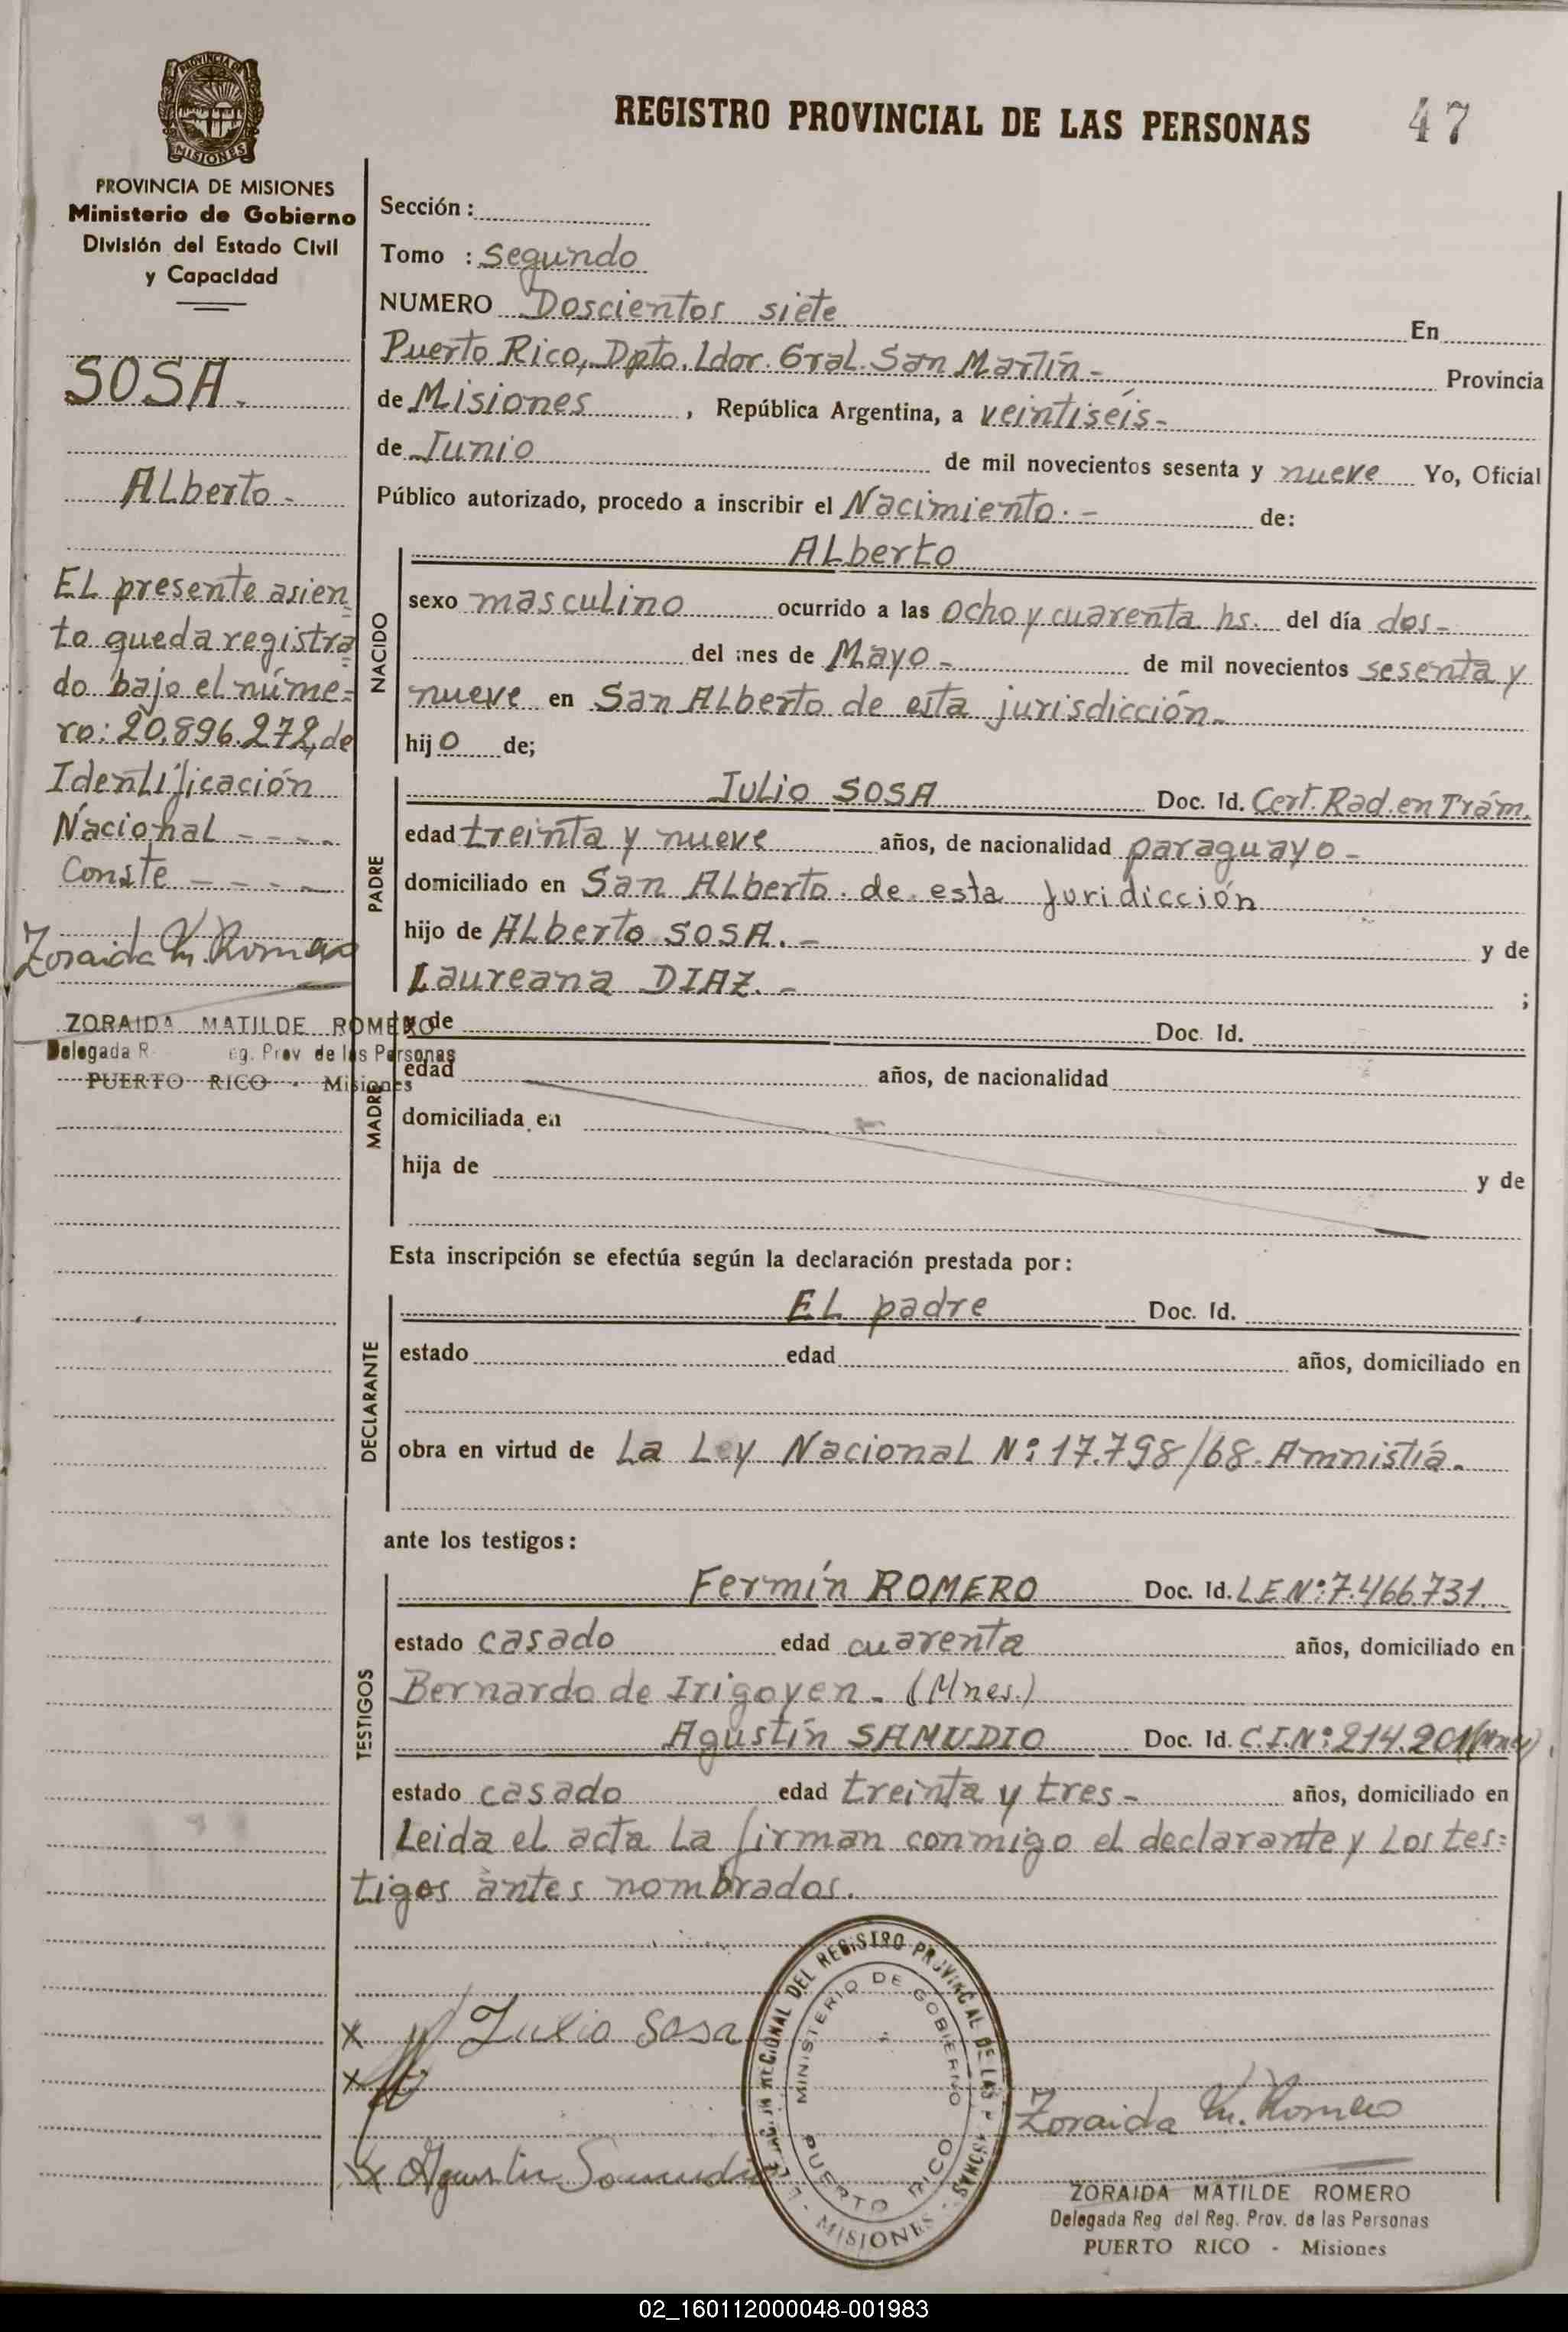 PROVINCIA DE
MISIONES
REGISTRO PROVINCIAL DE LAS PERSONAS 47
PROVINCIA DE MISIONES
Ministerio de Gobierno
División del Estado Civil
y Capacidad
SOSA.
Alberto.-
El presente asien
to queda registra
do bajo el núme=
ro: 20.896.272, de
Identificación
Nacional - - - -
Conste - - - -
Zoraida M. Romero
ZORAIDA MATILDE ROMERO
Delegada R eg. Prov de las Personas
PUERTO RICO - Misiones
Sección :
Tomo : Segundo
NUMERO Doscientos siete En
Puerto Rico, Dpto. Ldor. Gral. San Martín - Provincia
de Misiones , República Argentina, a veintiséis-
de Junio de mil novecientos sesenta y nueve Yo, Oficial
Público autorizado, procedo a inscribir el Nacimiento.- de:
NACIDO
Alberto
sexo masculino ocurrido a las ocho y cuarenta hs. del día dos-
del mes de Mayo - de mil novecientos sesenta y
nueve en San Alberto de esta jurisdicción-
hijo de;
PADRE
Julio SOSA Doc. Id. Cert. Rad. en Trám.
edad treinta y nueve años, de nacionalidad paraguayo -
domiciliado en San Alberto. de esta juridicción
hijo de Alberto SOSA. - y de
Laureana DIAZ. - ;
MADRE
y de Doc. Id.
edad años, de nacionalidad
domiciliada en
hija de y de
Esta inscripción se efectúa según la declaración prestada por:
DECLARANTE
El padre Doc. Id.
estado edad años, domiciliado en
obra en virtud de La Ley Nacional N: 17.798/68. Amnistía.
ante los testigos:
TESTIGOS
Fermín ROMERO Doc. Id. L E N°: 7.466.731.
estado casado edad cuarenta años, domiciliado en
Bernardo de Irigoyen - (Mnes.)
Agustín SAMUDIO Doc. Id. C.I.N°: 214.201 (Mnes).
estado casado edad treinta y tres - años, domiciliado en
Leida el acta la firman conmigo el declarante y los tes=
tigos antes nombrados.
x Julio Sosa
x
x Agustin Samudio
DEL REGISTRO PROVINCIAL DE LAS PERSONAS
MINISTERIO DE GOBIERNO
PUERTO RICO
- MISIONES -
Zoraida M. Romero
ZORAIDA MATILDE ROMERO
Delegada Reg del Reg. Prov. de las Personas
PUERTO RICO - Misiones
02_160112000048-001983